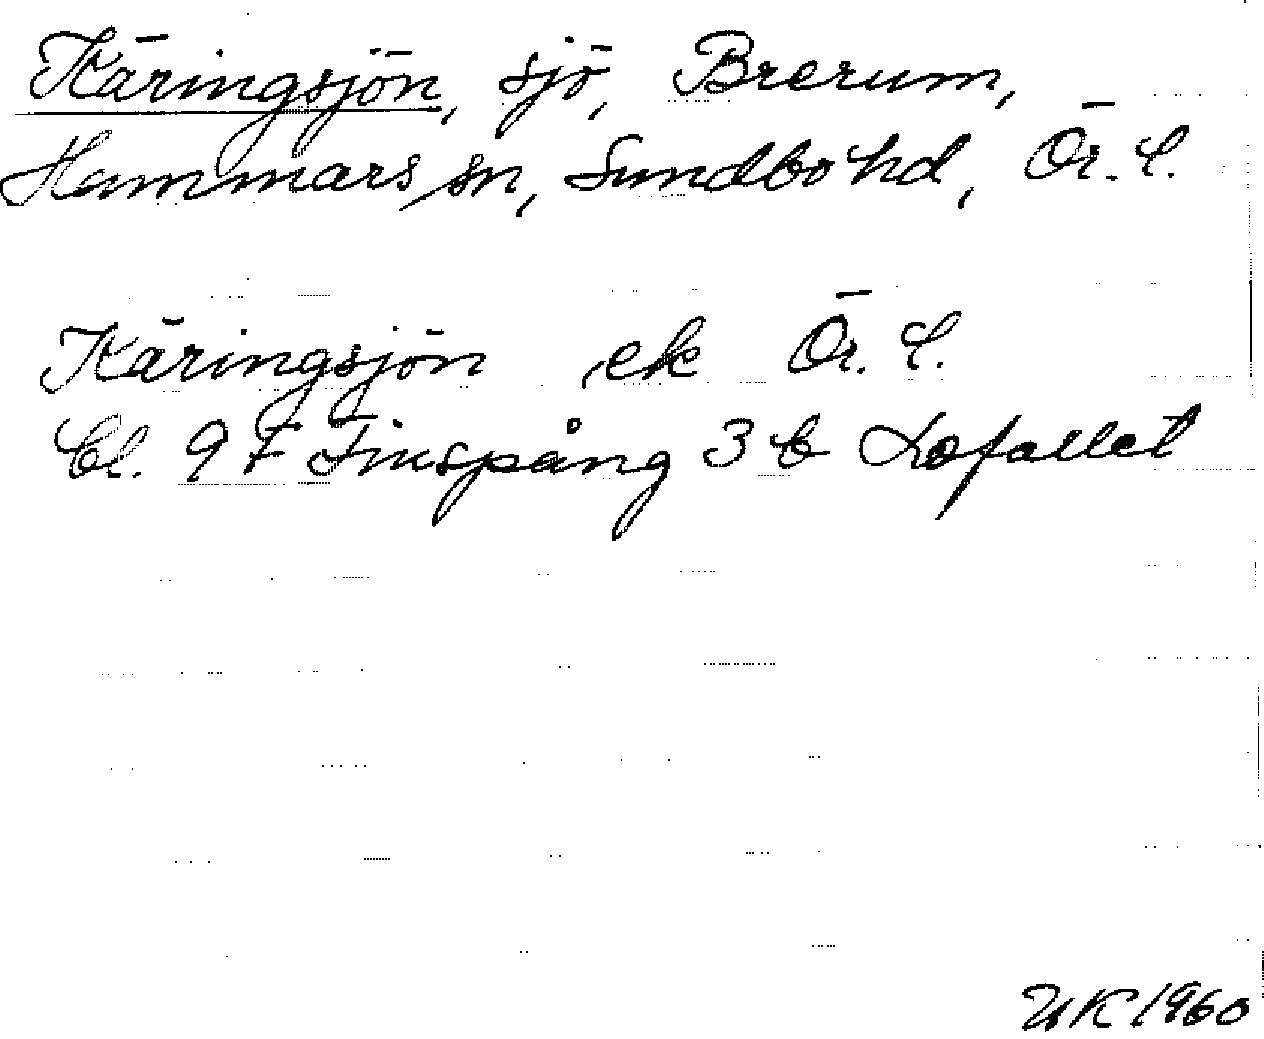 Käringsjön, sjö, Brerum,
Hammars sn, Sundbo hd, Ör. l.
Käringsjön ek Ör. l.
bl. 9 F Finspång 3 b Lofallet
UK 1960